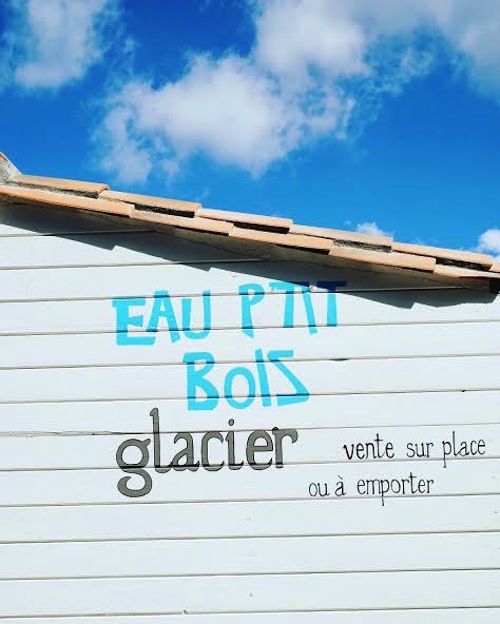 EAU P'TIT
BOIS
glacier
vente sur place
ou à emporter